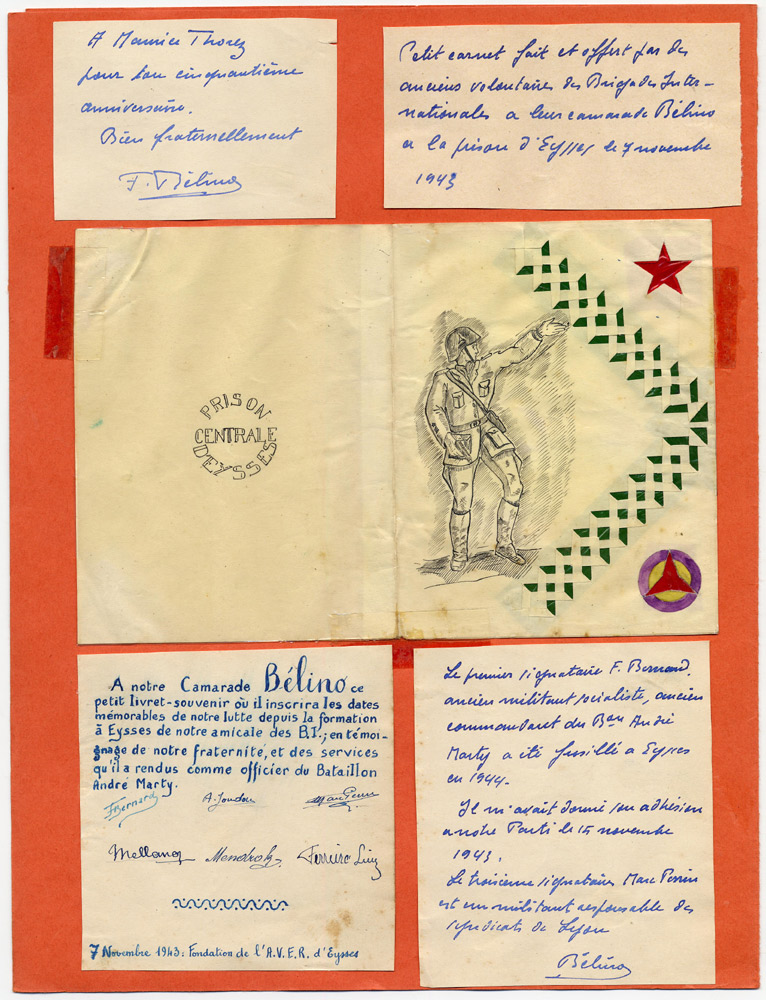 A Maurice Thorez
pour son cinquantième
anniversaire.
Bien fraternellement
F. Bélino
Petit carnet fait et offert par des
anciens volontaires des Brigades Inter-
nationales a leur camarade Bélino
a la prison d'Eysses le 7 novembre
1943
PRISON
CENTRALE
D'EYSSES
A notre Camarade Bélino ce
petit livret-souvenir où il inscrira les dates
mémorables de notre lutte depuis la formation
à Eysses de notre amicale des B.I.; en témoi-
gnage de notre fraternité, et des services
qu'il a rendus comme officier du Bataillon
André Marty.
F Bernard
Ferreiro Luiz
7 Novembre 1943: Fondation de l'A.V.E.R. d'Eysses
Le premier signataire F. Bernard,
ancien militant socialiste, ancien
commandant du Bon André
Marty a été fusillé a Eysses
en 1944.
Il m'avait donné son adhésion
a notre Parti le 15 novembre
1943.
Le troisième signataire Marc Perrin
est un militant responsable des
syndicats de Lyon
Bélino